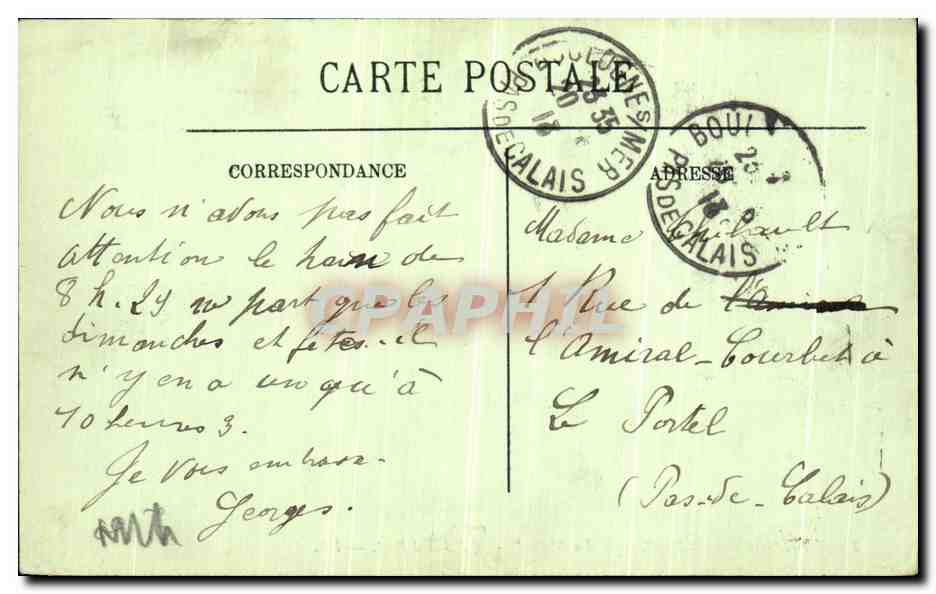 CARTE POSTALE
BOULOGNE S/MER
23 35
PAS DE CALAIS
BOUL
23
PAS DE CALAIS
CORRESPONDANCE
ADRESSE
Nous n'avons pas fait
attention le train de
8 h. 29 ne part que les
dimanches et fêtes. il
n'y en a un qu'à
10 heures 3.
Je vous embrasse.
Georges.
Madame Thibault
1 Rue de
l'Amiral-Courbet à
Le Portel
(Pas-de-Calais)
CPAPHIL